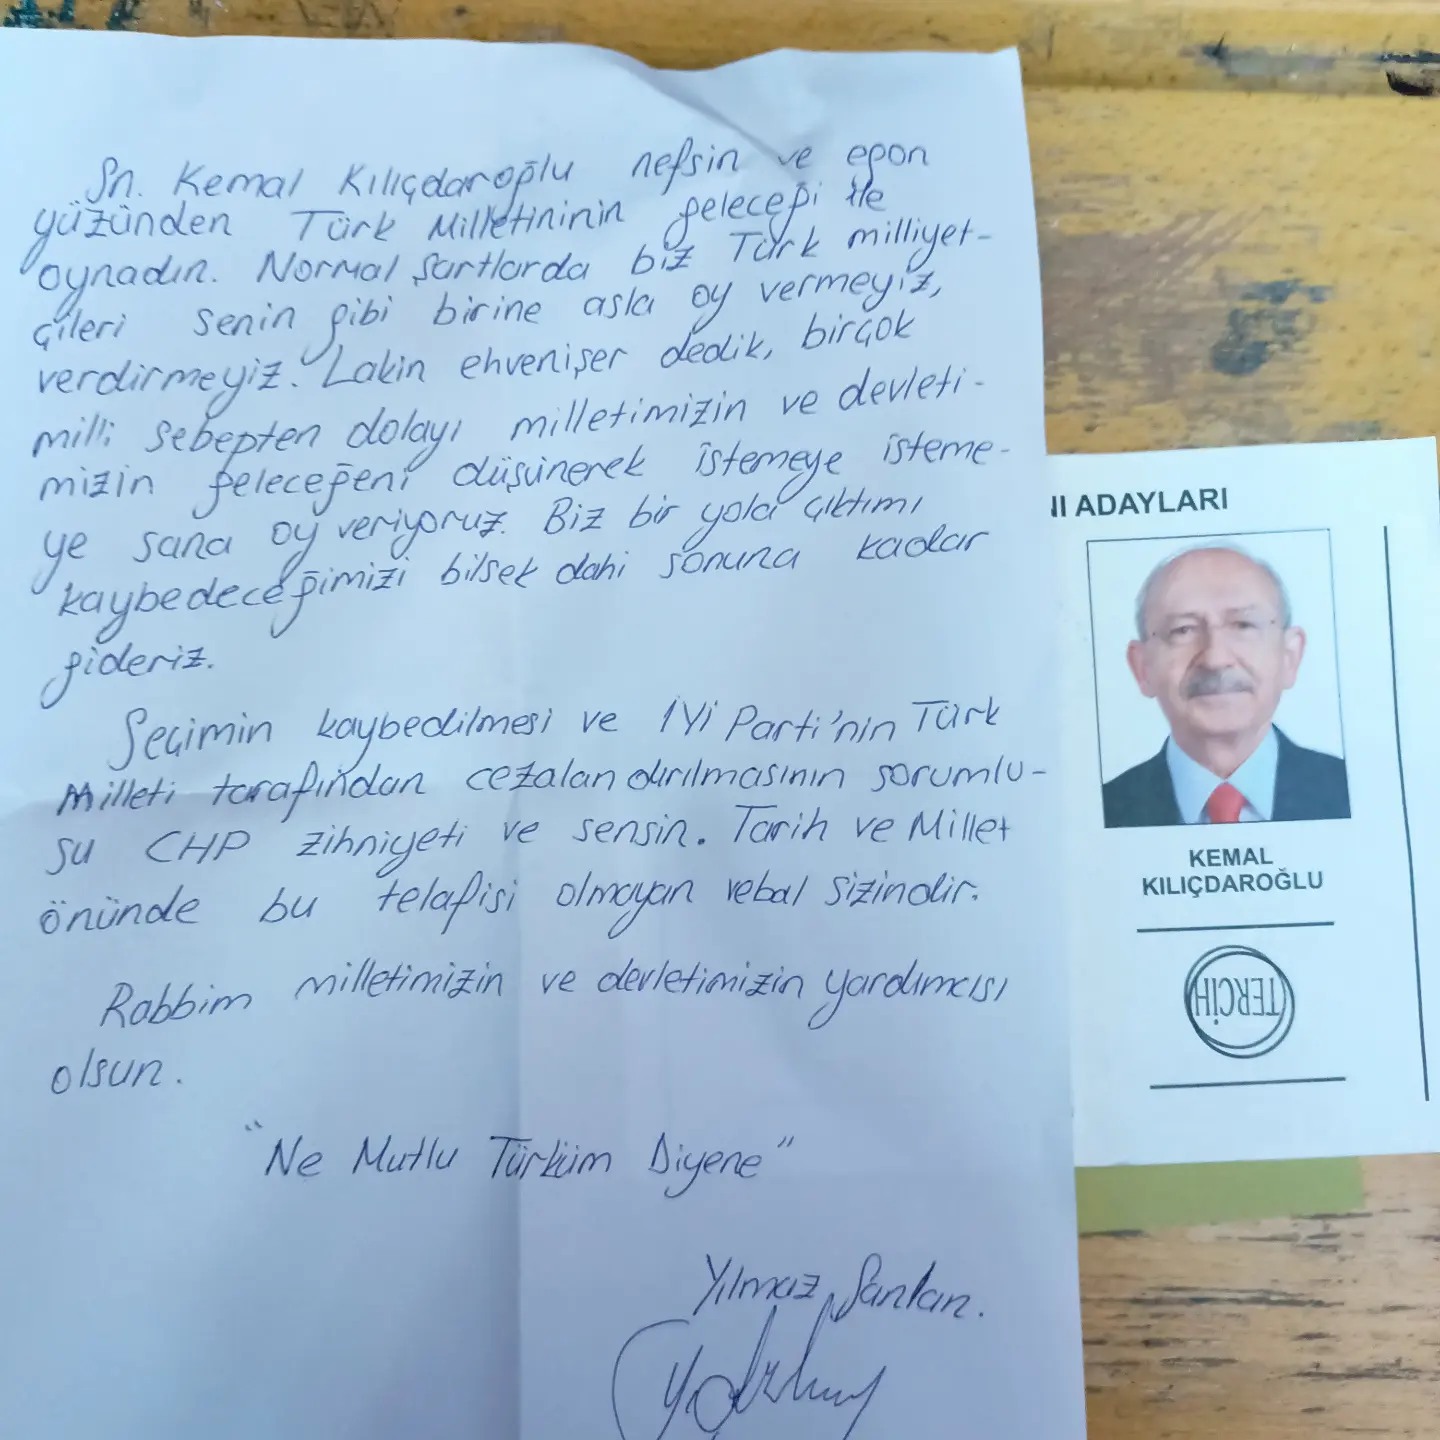 Sn. Kemal Kılıçdaroğlu nefsin ve egon
yüzünden Türk Milletininin geleceği ile
oynadın. Normal şartlarda biz Türk milliyet-
çileri senin gibi birine asla oy vermeyiz,
verdirmeyiz. Lakin ehvenişer dedik, birçok
milli sebepten dolayı milletimizin ve devleti-
mizin geleceğeni düşünerek istemeye isteme-
ye sana oy veriyoruz. Biz bir yola çıktımı
kaybedeceğimizi bilsek dahi sonuna kadar
gideriz.
Seçimin kaybedilmesi ve İYİ Parti'nin Türk
Milleti tarafından cezalandırılmasının sorumlu-
su CHP zihniyeti ve sensin. Tarih ve Millet
önünde bu telafisi olmayan vebal sizindir.
Rabbim milletimizin ve devletimizin yardımcısı
olsun.
"Ne Mutlu Türküm Diyene"
Yılmaz Şanlan.
NI ADAYLARI
KEMAL
KILIÇDAROĞLU
TERCİH